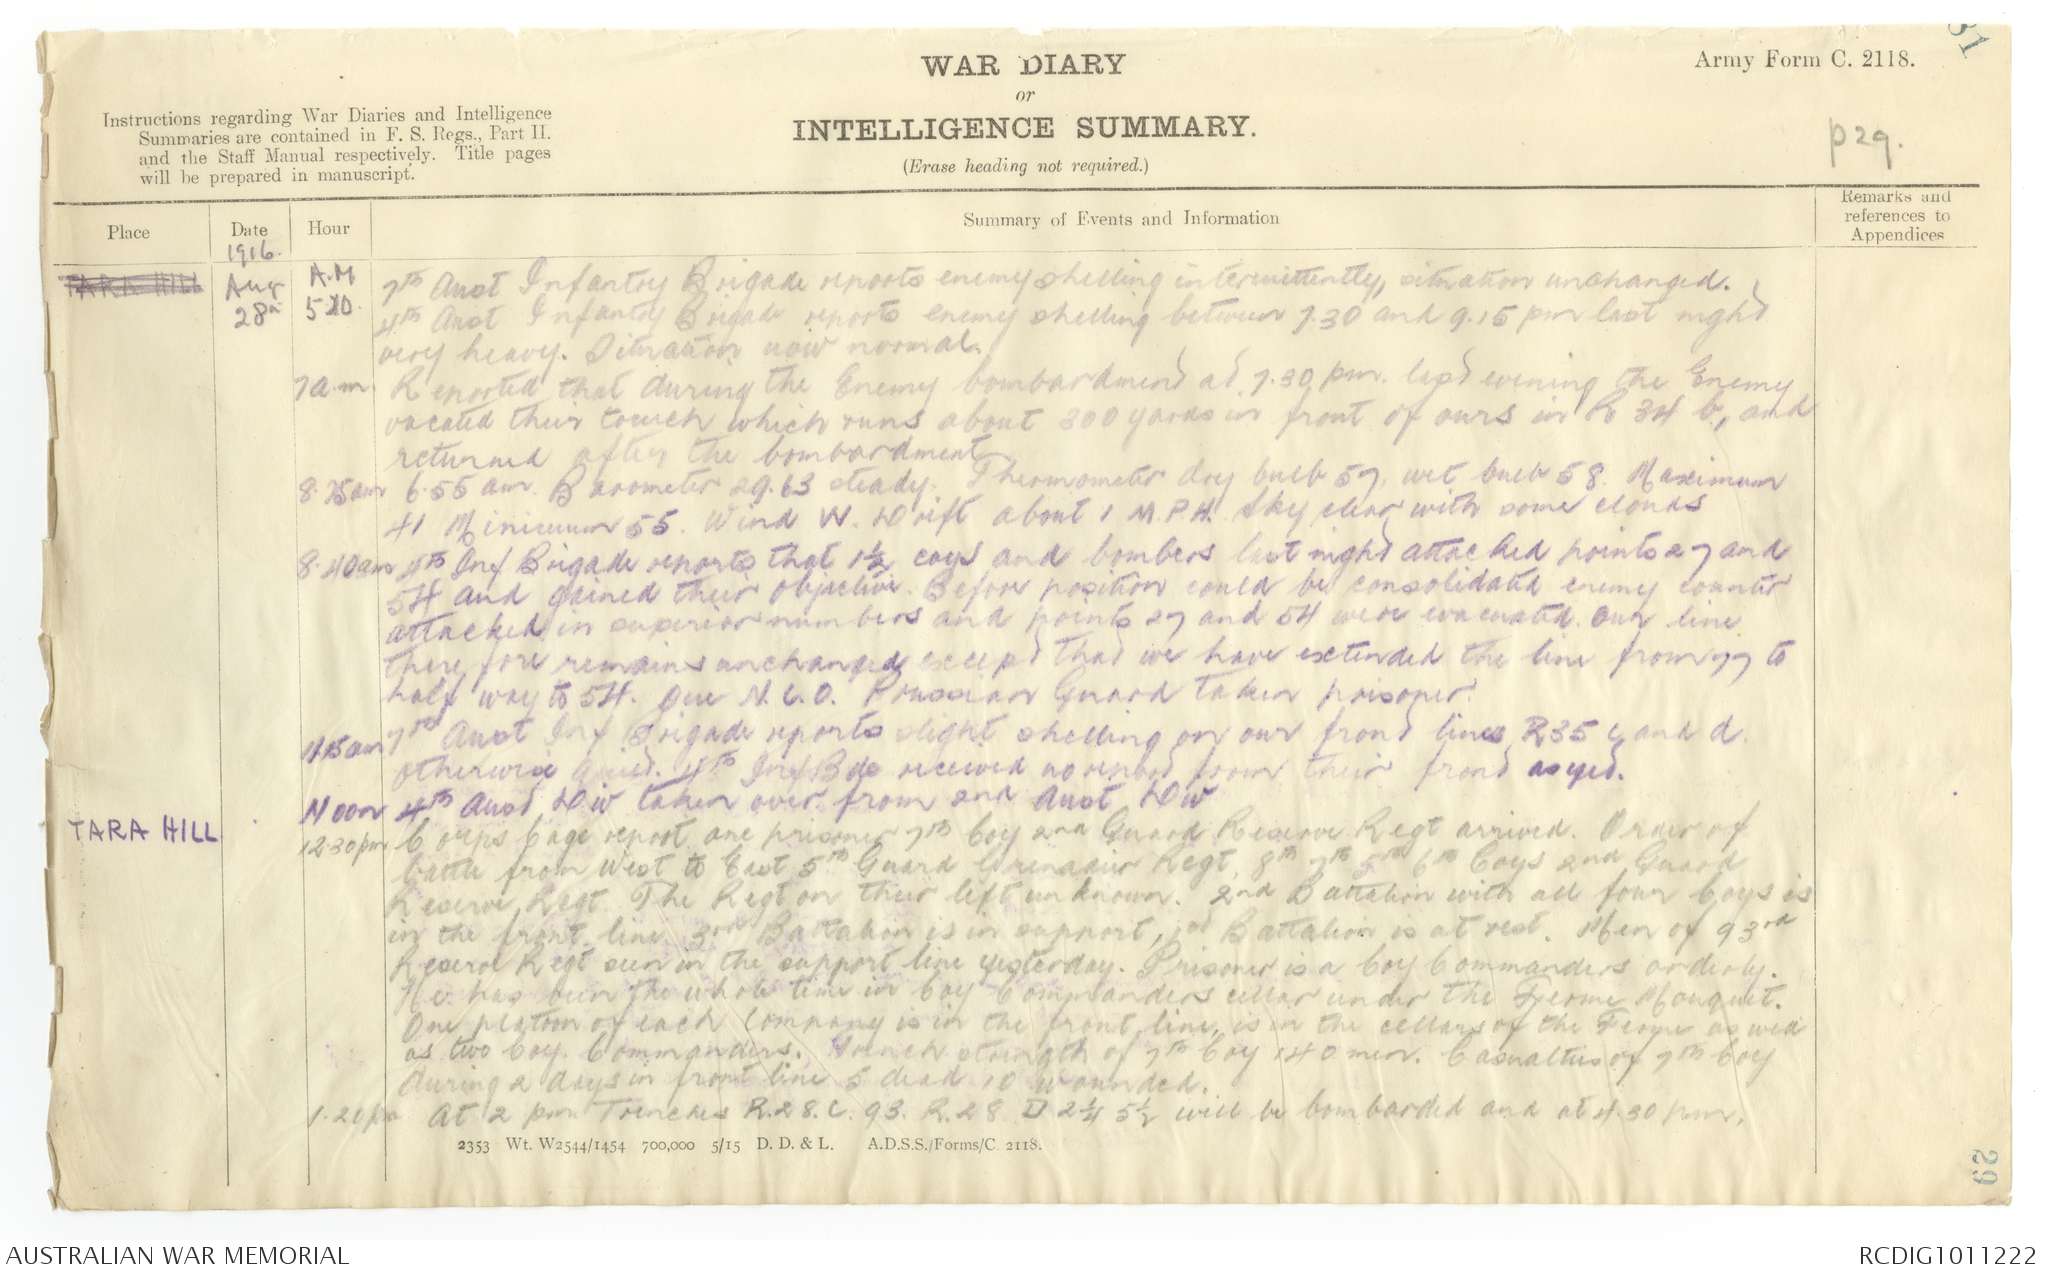 WAR DIARY
or
INTELLIGENCE SUMMARY.
(Erase heading not required.)
Army Form C. 2118.
31
p 29.
Instructions regarding War Diaries and Intelligence
Summaries are contained in F. S. Regs., Part II.
and the Staff Manual respectively. Title pages
will be prepared in manuscript.
Place
Date
Hour
Summary of Events and Information
Remarks and
references to
Appendices
1916.
TARA HILL
Aug
28th
A.M
7th Aust Infantry Brigade reports enemy shelling intermittently, situation unchanged.
4th Aust Infantry Brigade reports enemy shelling between 7.30 and 9.15 pm last night
very heavy. Situation now normal.
7 a.m Reported that during the Enemy bombardment at 7.30 pm. last evening the Enemy
vacated their trench which runs about 300 yards in front of ours in R 34 b, and
returned after the bombardment
6.55 am. Barometer 29.63 steady. Thermometer dry bulb 57, wet bulb 58. Maximum
41 Minimum 55. Wind W. Drift about 1 M.P.H. Sky clear with some clouds
8.40am 4th Inf Brigade reports that 1½ coys and bombers last night attacked points 27 and
54 and gained their objective. Before position could be consolidated enemy counter
attacked in superior numbers and points 27 and 54 were evacuated. Our line
therefore remains unchanged except that we have extended the line from 77 to
half way to 54. One N.C.O. Prussian Guard taken prisoner.
11.15am 7th Aust Inf Brigade reports slight shelling on our front lines R35 c and d.
otherwise quiet. 4th Inf Bde received no report from their front as yet.
Noon 4th Aust Div taken over from 2nd Aust Div
TARA HILL
12.30pm Corps Cage report one prisoner 7th Coy 2nd Guard Reserve Regt arrived. Order of
battle from West to East 5th Guard Grenadier Regt, 8th 7th 5th 6th Coys 2nd Guard
Reserve Regt. The Regt on their left unknown. 2nd Battalion with all four Coys is
in the front line, 3rd Battalion is in support, 1st Battalion is at rest. Men of 93rd
Reserve Regt seen in the support line yesterday. Prisoner is a Coy Commanders orderly.
He has been the whole time in Coy Commanders cellar under the Ferme Mouquet.
One platoon of each Company is in the front line, is in the cellars of the Ferme as well
as two Coy. Commanders. Trench strength of 7th Coy 140 men. Casualties of 7th Coy
during 2 days in front line 5 dead 10 wounded.
At 2 pm Trenches R.28.C.93. R.28.D 2¼ 5½ will be bombarded and at 4.30 pm,
2353 Wt. W2544/1454 700,000 5/15 D. D. & L. A.D.S.S./Forms/C. 2118.
29
AUSTRALIAN WAR MEMORIAL
RCDIG1011222